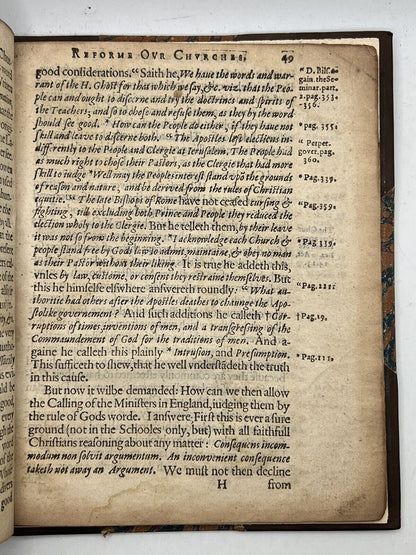 REFORME OVR CHVRCHES. 49
good considerations. " Saith he, We haue the words and war-
rant of the H. Ghost for that which we say, &c. viz. that the Peo-
ple can and ought to discerne and try the doctrines and spirits of
the Teachers; and so chose and refuse them, as they by the word
should see good. " How can the People do either, if they haue not
skill and leaue to discerne both. " The Apostles left elections in-
differently to the People and Clergie at Ierusalem. The People had
as much right to chose their Pastors, as the Clergie that had more
skill to iudge " Well may the Peoples interest stand vpō the grounds
of reason and nature, and be derived from the rules of Christian
equitie. " The late Bishops of Rome haue not ceased cursing &
fighting, till excluding both Prince and People they reduced the
election wholy to the Clergie. But he telleth them, by their leave
it was not so from the beginning. " I acknowledge each Church &
people stand free by Gods law to admit, maintaine, & obey no man
as their Pastor without their liking. It is true he addeth this,
vnles by law, custome, or consent they restraine themselves. But
this he himselfe elswhere answereth roundly: " What au-
thoritie had others after the Apostles deathes to chaunge the Apo-
stolike governement? And such additions he calleth † Cor-
ruptions of times, inventions of men, and a transgressing of the
Commaundement of God for the traditions of men. And a-
gaine he calleth this plainly * Intrusion, and Presumption.
This sufficeth to shew, that he well vnderstādeth the truth
in this cause.
But now it wilbe demanded: How can we then allow
the Calling of the Ministers in England, iudging them by
the rule of Gods worde. I answere: First this is ever a sure
ground (not in the Schooles only, but) with all faithfull
Christians reasoning about any matter: Consequens incom-
modum non solvit argumentum. An inconvenient consequence
taketh not away an Argument. We must not then decline
H from
" D. Bilso.
gain. the Se-
minar. part.
2. pag. 353.
356.
" Pag. 355.
" Perpet.
gover. pag.
360.
" Pag. 339.
" Pag. 359.
" Pag. 339.
" Pag. 111.
† Pag. 19.
* Pag. 111.